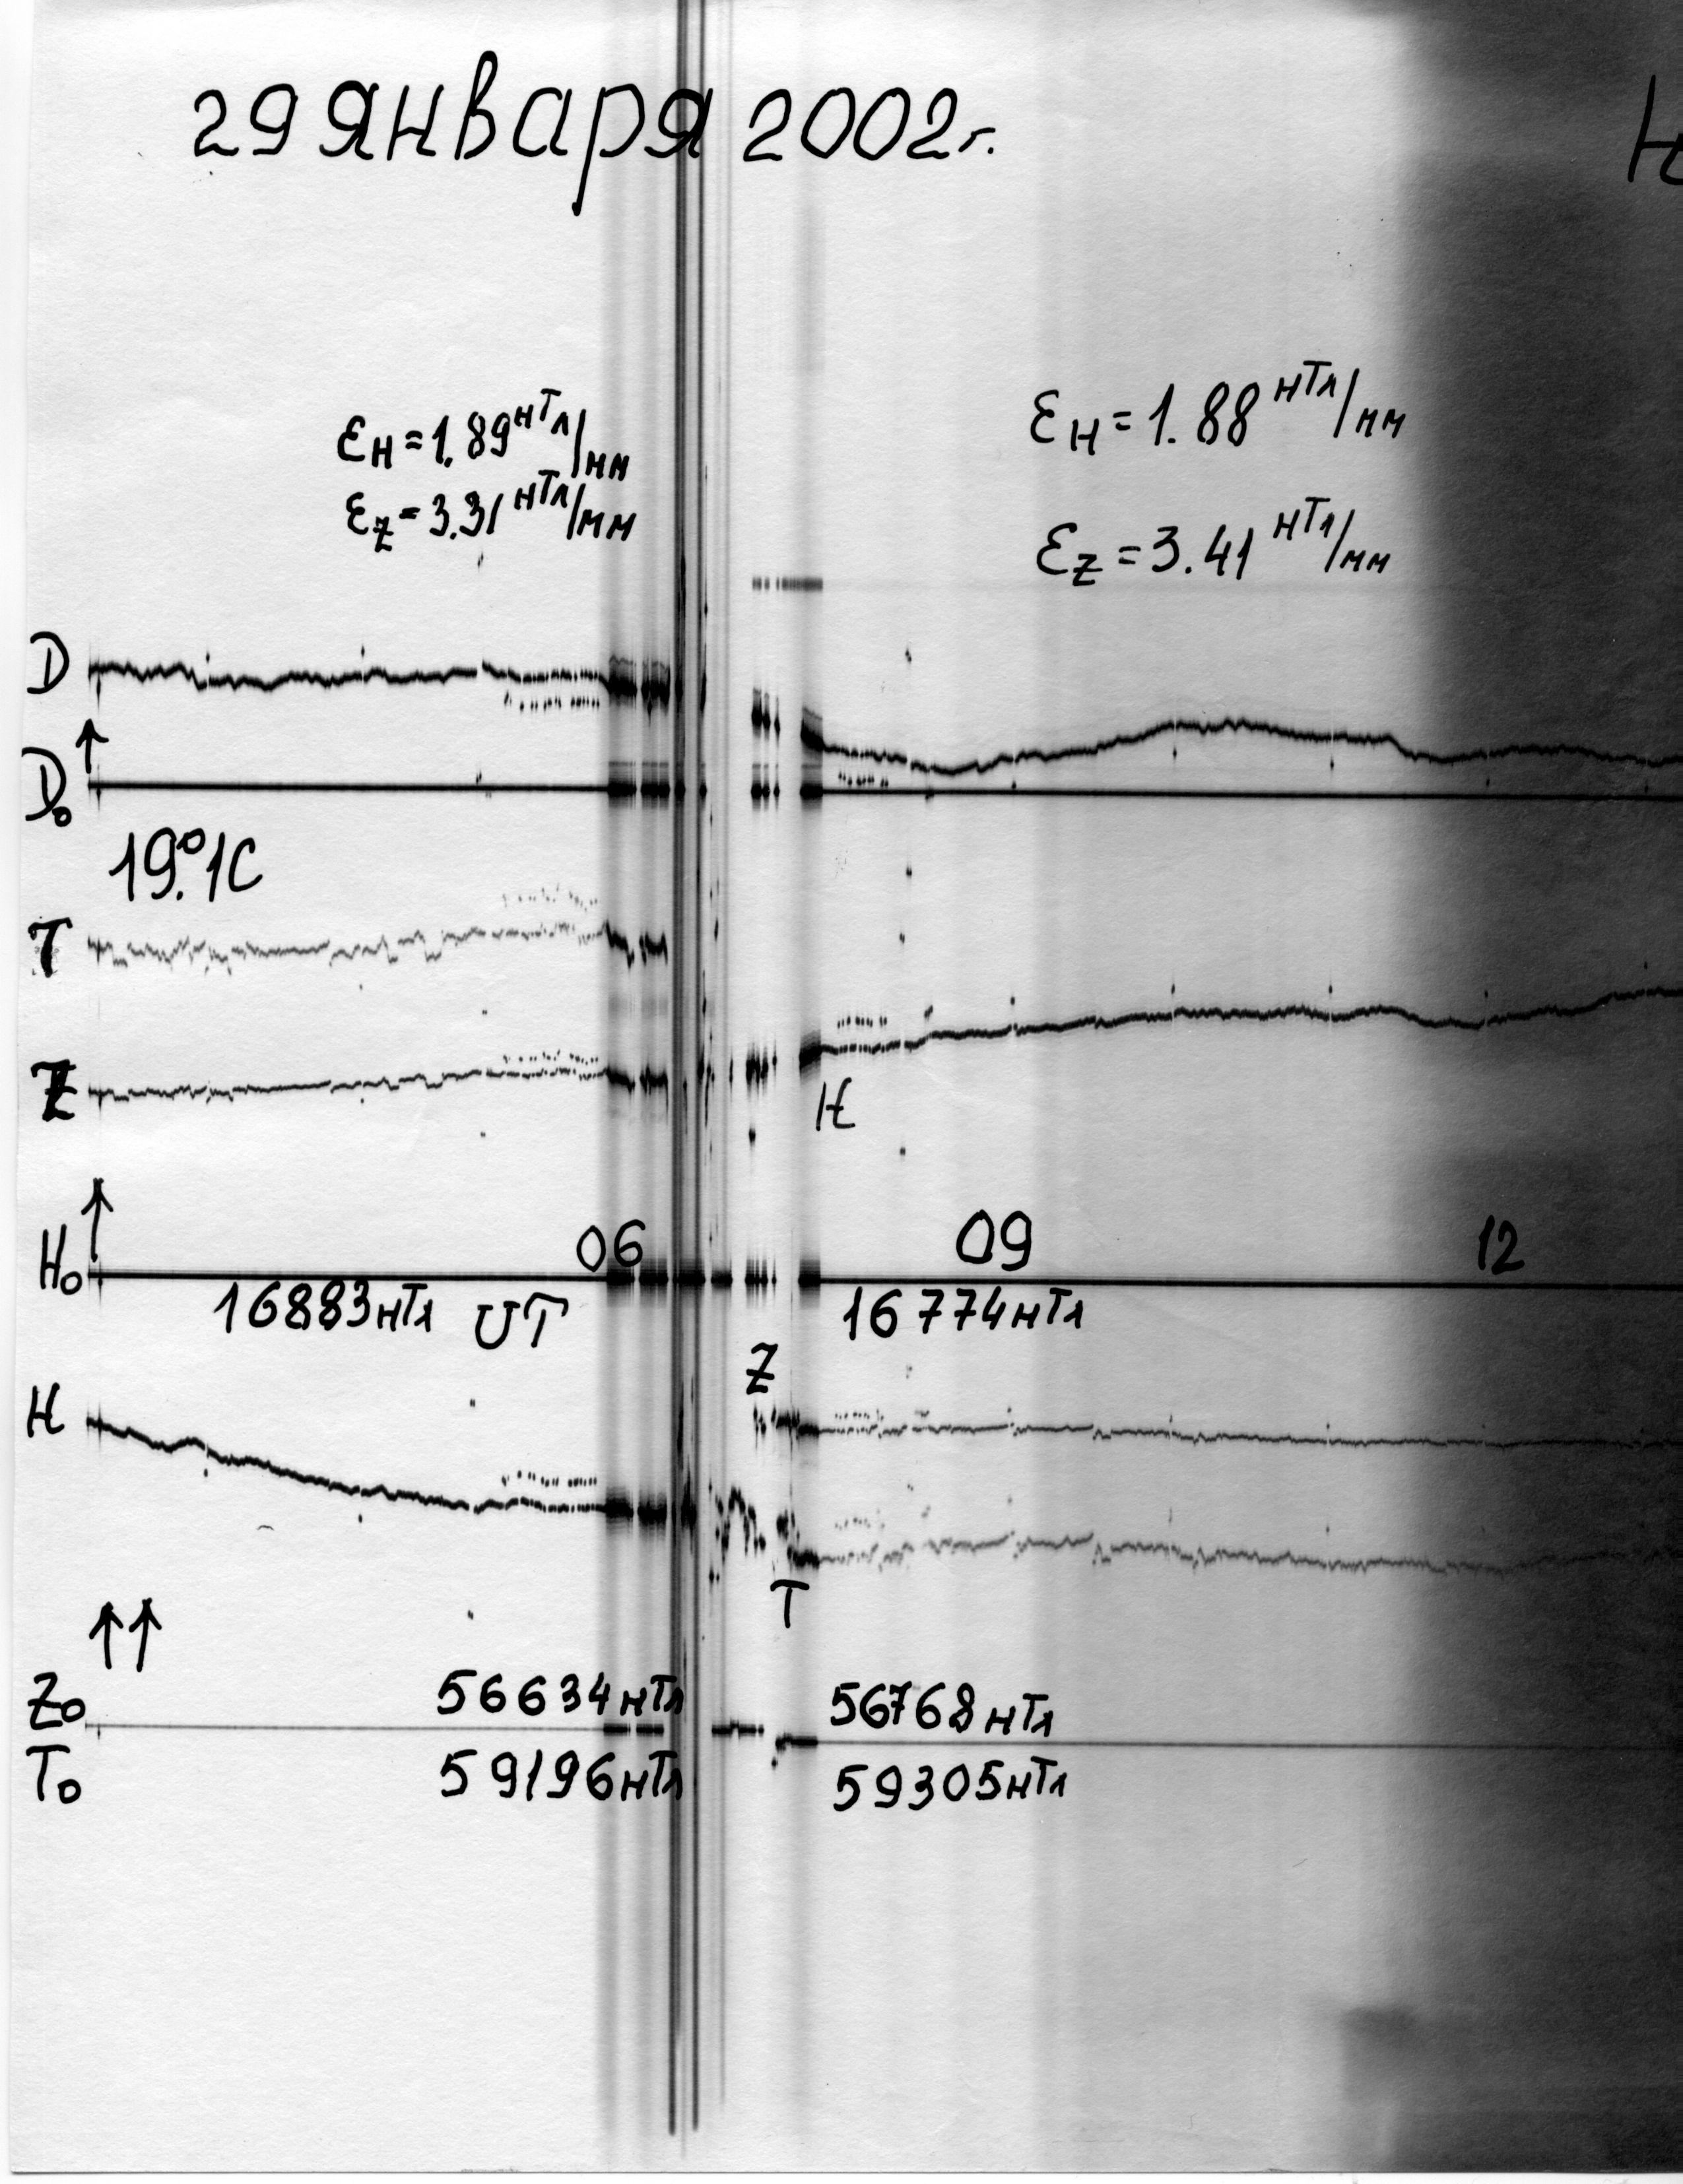 29 января 2002г.
εH = 1.89 нТл/мм
εZ = 3.31 нТл/мм
εH = 1.88 нТл/мм
εZ = 3.41 нТл/мм
D
D₀
19.°1С
T
Z
H
H₀
06
09
12
16883нТл UT
16774нТл
Z
H
T
Z₀
56634нТл
56768нТл
T₀
59196нТл
59305нТл